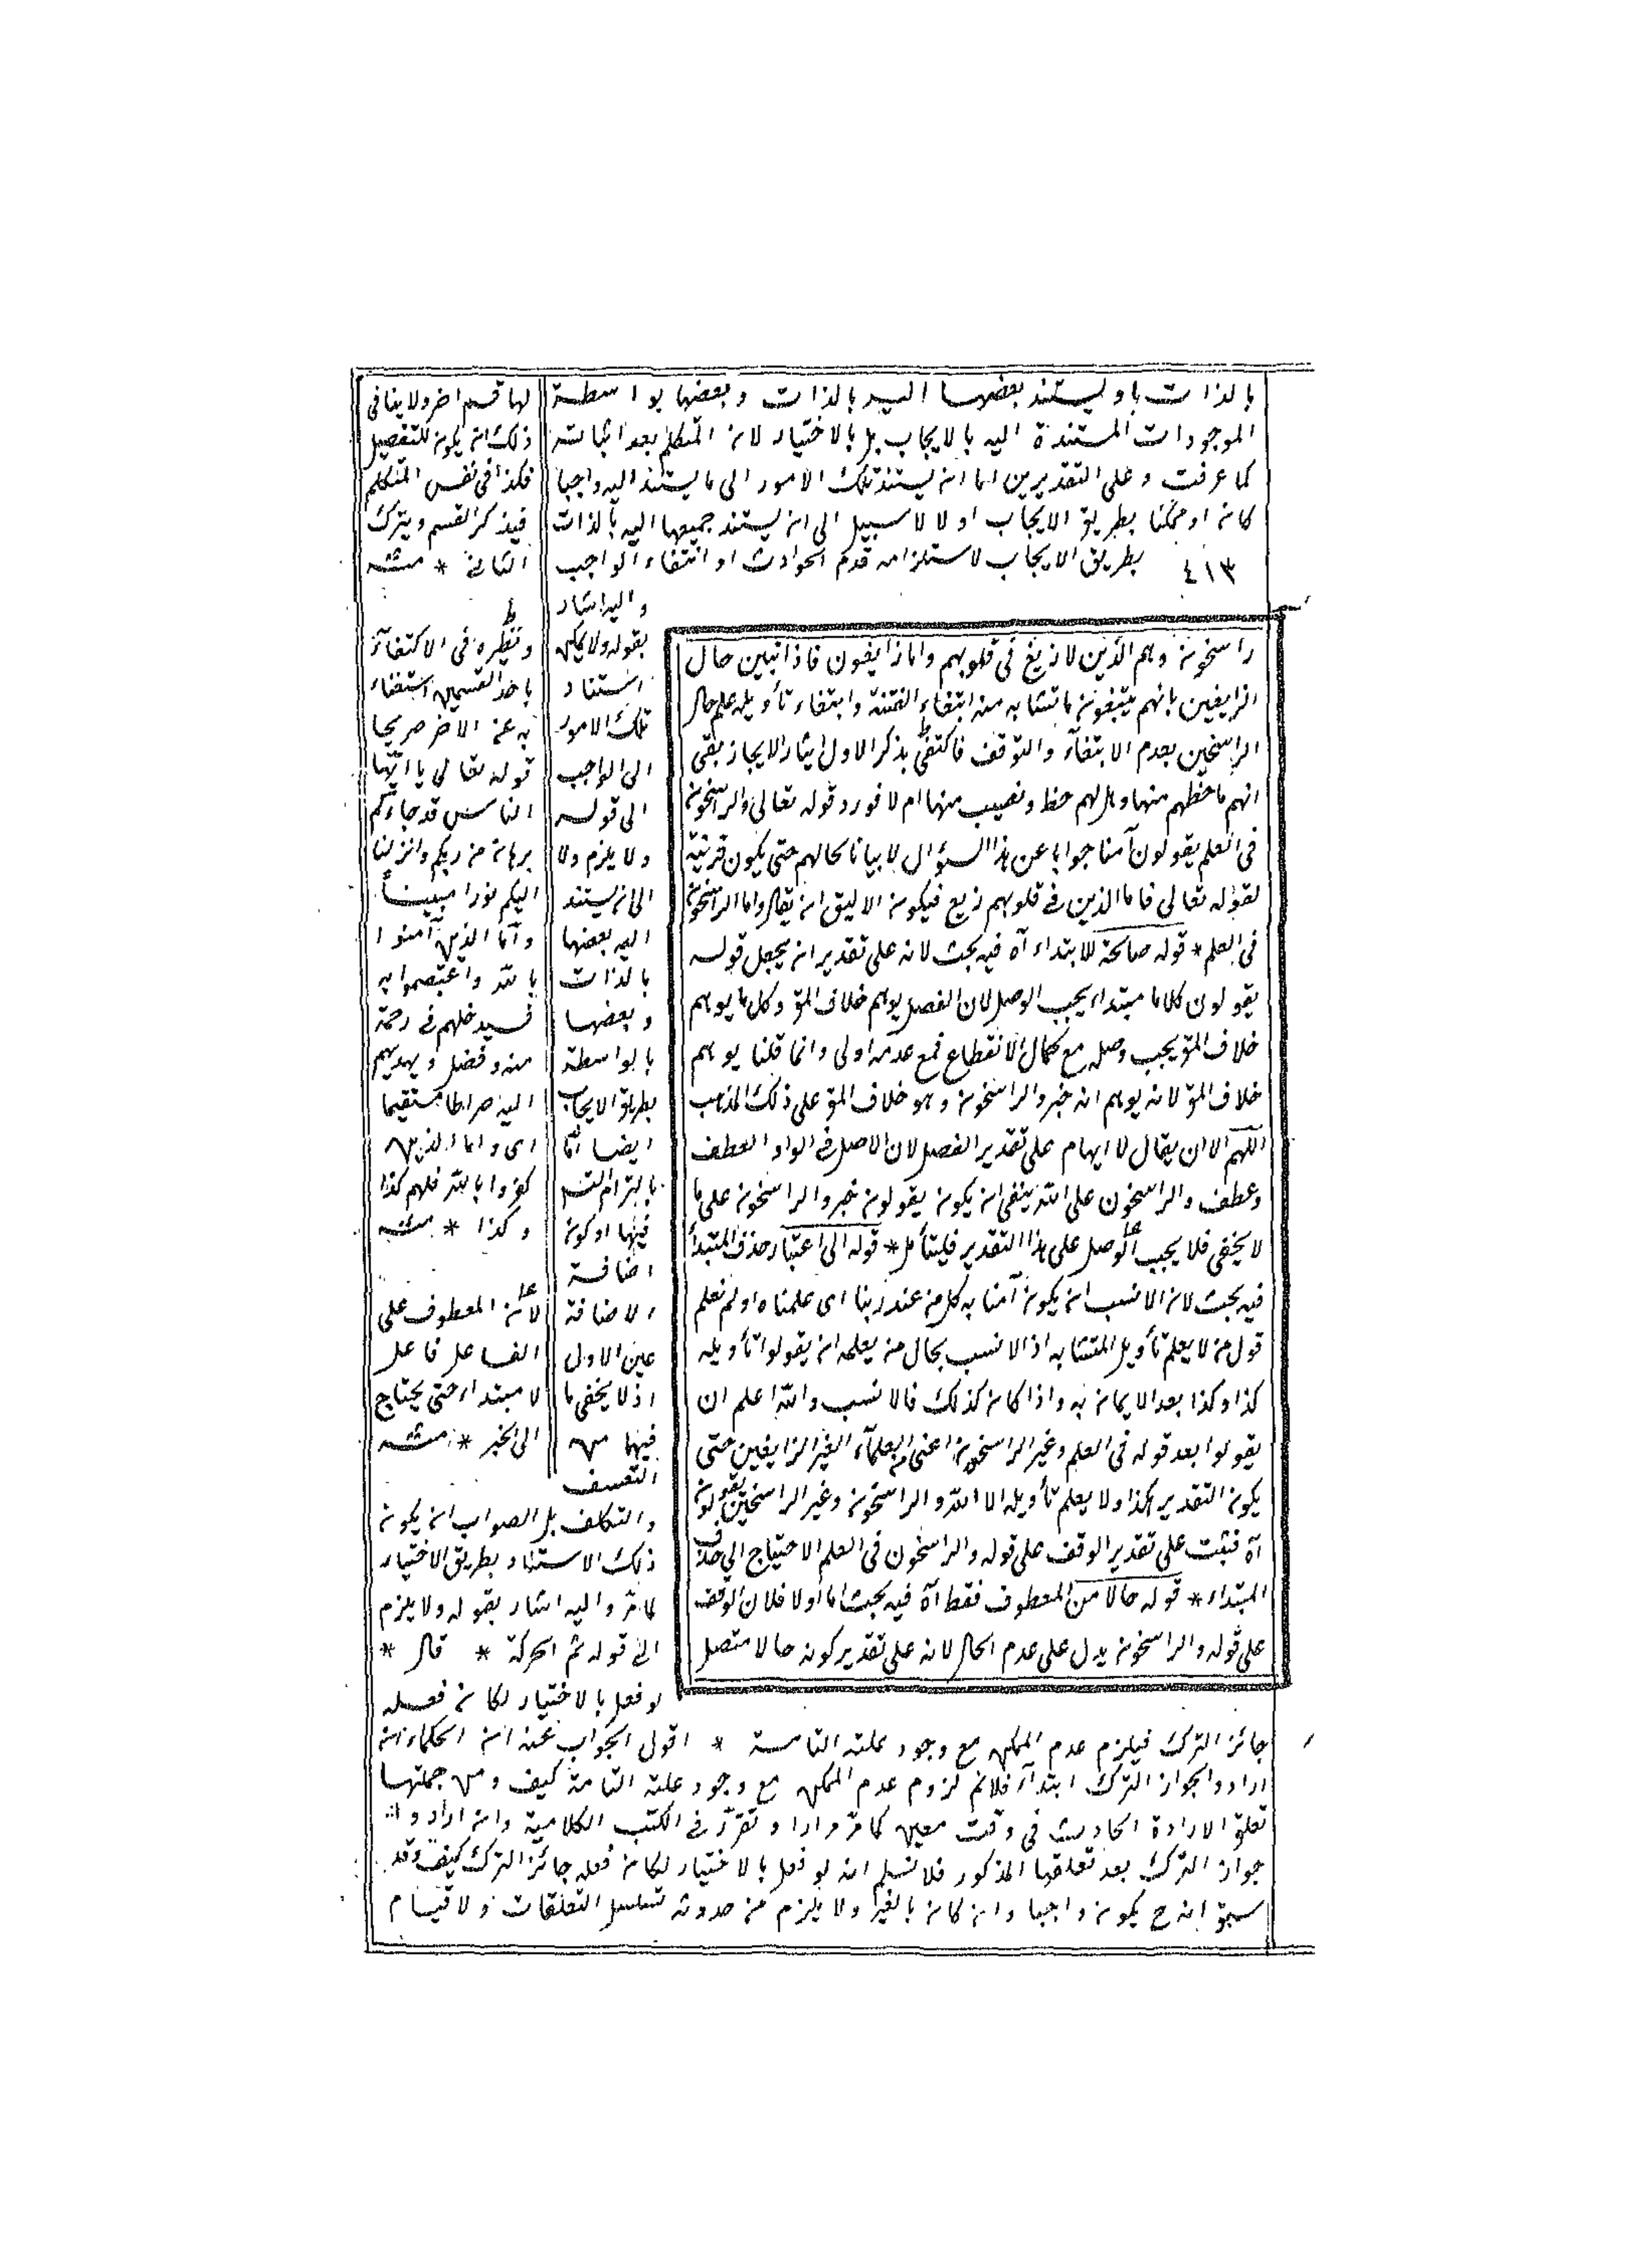 بالذات او يستند بعضها اليه بالذات وبعضها بواسطة
الموجودات المستندة اليه بالايجاب بل بالاختيار لان المتكلم بعد اثباته
كما عرفت وعلى التقديرين اما ان يستند تلك الامور الى ما يستند اليه واجبا
كان او ممكنا بطريق الايجاب او لا لا سبيل الى ان يستند جميعها اليه بالذات
٤١٣ بطريق الايجاب لاستلزامه قدم الحوادث او انتفاء الواجب
واليه اشار
بقوله ولا يمكن
استناد
تلك الامور
الى الواجب
الى قوله
ولا يلزم ولا
الى ان يستند
اليه بعضها
بالذات
وبعضها
بالواسطة
بطريق الايجاب
ايضا اما
بالتزام التسم
فيها او كون
اضافة
الاضافة
عين الاول
اذ لا يخفى ما
فيها من
التعسف
والتكلف بل الصواب ان يكون
ذلك الاستناد بطريق الاختيار
كما مر واليه اشار بقوله ولا يلزم
الى قوله ثم الحركة * قال *
لو فعل بالاختيار لكان فعله
جائز الترك فيلزم عدم الممكن مع وجود علته التامة * اقول الجواب عنه ان الحكماء ان
ارادوا بجواز الترك ابتدآء فلانم لزوم عدم الممكن مع وجود علته التامة كيف ومن جملتها
تعلق الارادة الحادث فى وقت معين كما مر مرارا وتقرر فى الكتب الكلامية وان ارادوا
جواز الترك بعد تعلقها المذكور فلا نسلم انه لو فعل بالاختيار لكان فعله جائز الترك كيف وقد
سبق انه ح يكون واجبا وان كان بالغير ولا يلزم من حدوثه تسلسل التعلقات ولا قيام
راسخون وهم الذين لا زيغ فى قلوبهم واما زايغون فاذا تبين حال
الزايغين بانهم يتبعون ما تشابه منه ابتغاء الفتنة وابتغاء تأويله علم حال
الراسخين بعدم الابتغآء والتوقف فاكتفى بذكر الاول ايثار الايجاز بقى
انهم ما حظهم منها وهل لهم حظ ونصيب منها ام لا فورد قوله تعالى والراسخون
فى العلم يقولون آمنا جوابا عن هذا السؤال لا بيانا لحالهم حتى يكون قرينة
لقوله تعالى فاما الذين فى قلوبهم زيغ فيكون الاليق ان يقال واما الراسخون
فى العلم * قوله صالحة للابتداء آه فيه بحث لانه على تقدير ان يجعل قوله
يقولون كلاما مبتداء يجب الوصل لان الفصل يوهم خلاف المق وكل ما يوهم
خلاف المق يجب وصله مع كمال الانقطاع فمع عدمه اولى وانما قلنا يوهم
خلاف المق لانه يوهم انه خبر والراسخون وهو خلاف المق على ذلك المذهب
اللهم الا ان يقال لا ايهام على تقدير الفصل لان الاصل فى الواو العطف
وعطف والراسخون على الله ينفى ان يكون يقولون خبر والراسخون على ما
لا يخفى فلا يجب الوصل على هذا التقدير فليتأمل * قوله الى اعتبار حذف المبتدأ
فيه بحث لان الانسب ان يكون آمنا به كل من عند ربنا اى علمناه او لم نعلم
قول من لا يعلم تأويل المتشابه اذ الانسب بحال من يعلمه ان يقولوا تأويله
كذا وكذا بعد الايمان به واذا كان كذلك فالانسب والله اعلم ان
يقولوا بعد قوله فى العلم وغير الراسخون اعنى العلمآء الغير الزايغين حتى
يكون التقدير هكذا ولا يعلم تأويله الا الله والراسخون وغير الراسخين يقولون
آه فثبت على تقدير الوقف على قوله والراسخون فى العلم الاحتياج الى حذف
المبتداء * قوله حالا من المعطوف فقط آه فيه بحث اما اولا فلان الوقف
على قوله والراسخون يدل على عدم الحال لانه على تقدير كونه حالا متصل
لها قسم اخر ولا ينافى
ذلك ان يكون للتفصيل
فكذا فى نفس المتكلم
فيذكر القسم ويترك
الثانى * منه
ونظيره فى الاكتفآء
باحد القسمين استغناء
به عن الاخر صريحا
قوله تعالى يا ايها
الناس قد جاءكم
برهان من ربكم وانزلنا
اليكم نورا مبينا
وآما الذين آمنوا
بالله واعتصموا به
فسيدخلهم فى رحمة
منه وفضل ويهديهم
اليه صراطا مستقيما
اى واما الذين
كفروا بالله فلهم كذا
وكذا * منه
لان المعطوف على
الفاعل فاعل
لا مبتداء حتى يحتاج
الى الخبر * منه